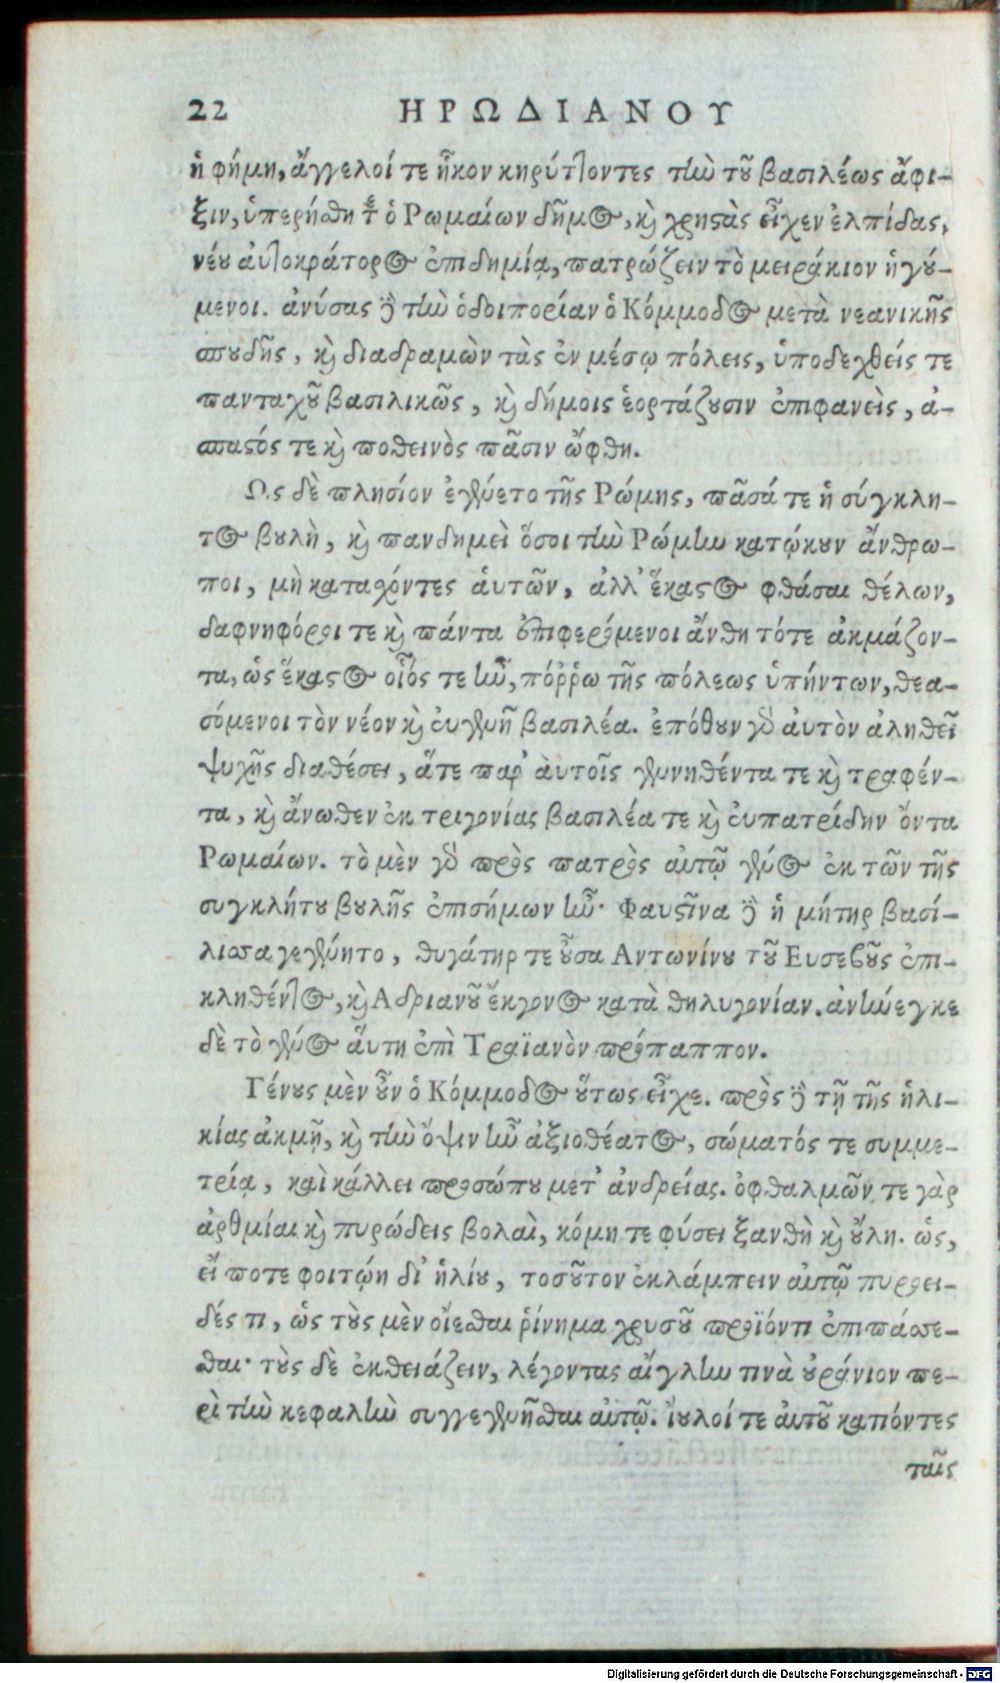 22 ΗΡΩΔΙΑΝΟΥ
ἡ φήμη, ἄγγελοί τε ἧκον κηρύττοντες τὴν τοῦ βασιλέως ἄφι-
ξιν, ὑπερήσθη τε ὁ Ρωμαίων δῆμος, καὶ χρηστὰς εἶχεν ἐλπίδας,
νέου αὐτοκράτορος ἐπιδημίᾳ, πατρώζειν τὸ μειράκιον ἡγού-
μενοι. ἀνύσας δὲ τὴν ὁδοιπορίαν ὁ Κόμμοδος μετὰ νεανικῆς
σπουδῆς, καὶ διαδραμὼν τὰς ἐν μέσῳ πόλεις, ὑποδεχθείς τε
πανταχοῦ βασιλικῶς, καὶ δήμοις ἑορτάζουσιν ἐπιφανεὶς, ἀ-
σπαστός τε καὶ ποθεινὸς πᾶσιν ὤφθη.
Ως δὲ πλησίον ἐγένετο τῆς Ρώμης, πᾶσά τε ἡ σύγκλη-
τος βουλὴ, καὶ πανδημεὶ ὅσοι τὴν Ρώμην κατῴκουν ἄνθρω-
ποι, μὴ κατασχόντες ἑυτῶν, ἀλλ' ἕκαστος φθάσαι θέλων,
δαφνηφόροι τε καὶ πάντα ἐπιφερόμενοι ἄνθη τότε ἀκμάζον-
τα, ὡς ἕκαστος οἷός τε ἦν, πόῤῥω τῆς πόλεως ὑπήντων, θεα-
σόμενοι τὸν νέον καὶ εὐγενῆ βασιλέα. ἐπόθουν γὰρ αὐτὸν ἀληθεῖ
ψυχῆς διαθέσει, ἅτε παρ' αὐτοῖς γεννηθέντα τε καὶ τραφέν-
τα, καὶ ἄνωθεν ἐκ τριγονίας βασιλέα τε καὶ εὐπατρίδην ὄντα
Ρωμαίων. τὸ μὲν γὰρ πρὸς πατρὸς αὐτῷ γένος ἐκ τῶν τῆς
συγκλήτου βουλῆς ἐπισήμων ἦν· Φαυστῖνα δὲ ἡ μήτηρ βασί-
λισσα γεγένητο, θυγάτηρ τε οὖσα Αντωνίνου τοῦ Ευσεβοῦς ἐπι-
κληθέντος, καὶ Αδριανοῦ ἔκγονος κατὰ θηλυγονίαν. ἀνήνεγκε
δὲ τὸ γένος αὕτη ἐπὶ Τραϊανὸν πρόπαππον.
Γένους μὲν οὖν ὁ Κόμμοδος οὕτως εἶχε. πρὸς δὲ τῇ τῆς ἡλι-
κίας ἀκμῇ, καὶ τὴν ὄψιν ἦν ἀξιοθέατος, σώματός τε συμμε-
τρίᾳ, καὶ κάλλει προσώπου μετ' ἀνδρείας. ὀφθαλμῶν τε γὰρ
ἀρθμίαι καὶ πυρώδεις βολαὶ, κόμη τε φύσει ξανθὴ καὶ οὔλη. ὡς,
εἴ ποτε φοιτῴη δι' ἡλίου, τοσοῦτον ἐκλάμπειν αὐτῷ πυροει-
δές τι, ὡς τοὺς μὲν οἴεσθαι ῥίνημα χρυσοῦ προϊόντι ἐπιπάσσε-
σθαι· τοὺς δὲ ἐκθειάζειν, λέγοντας αἴγλην τινὰ οὐράνιον πε-
ρὶ τὴν κεφαλὴν συγγεγενῆσθαι αὐτῷ. ἴουλοί τε αὐτοῦ κατιόντες
ταῖς
Digitalisierung gefördert durch die Deutsche Forschungsgemeinschaft - DFG